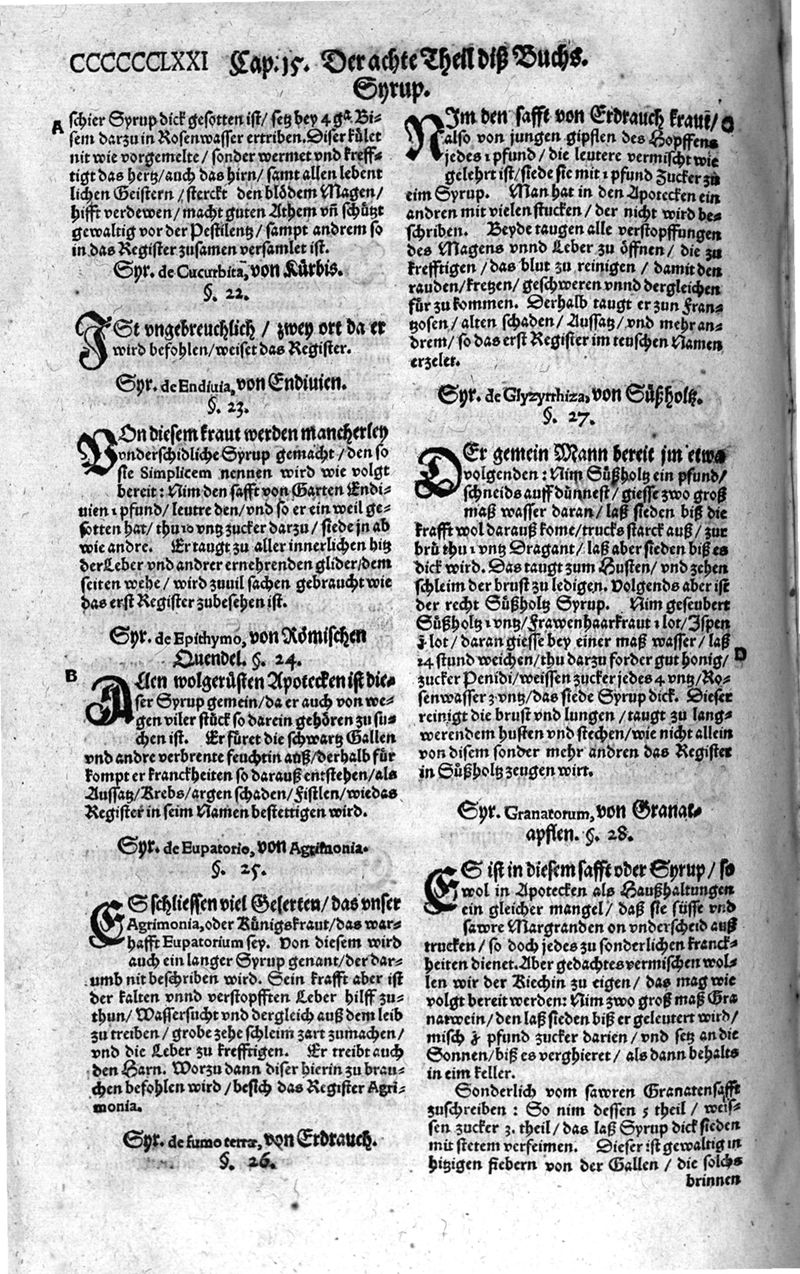 CCCCCCLXXI Cap: 15. Der achte Theil diß Buchs.
Syrup.
A
schier Syrup dick gesotten ist / setz bey 4 gā. Bi⸗
sem darzu in Rosenwasser ertriben. Diser kület
nit wie vorgemelte / sonder wermet vnd kreff⸗
tigt das hertz / auch das hirn / samt allen lebent
lichen Geistern / sterckt den blödem Magen /
hilfft verdewen / macht guten Athem vñ schützt
gewaltig vor der Pestilentz / sampt andrem so
in das Register zusamen versamlet ist.
Syr. de Cucurbita, von Kürbis.
§. 22.
ISt vngebreuchlich / zwey ort da er
wird befohlen / weiset das Register.
Syr. de Endiuia, von Endiuien.
§. 23.
VOn diesem kraut werden mancherley
vnderschidliche Syrup gemacht / den so
sie Simplicem nennen wird wie volgt
bereit: Nim den safft von Garten Endi⸗
uien 1 pfund / leutre den / vnd so er ein weil ge⸗
sotten hat / thu 10 vntz zucker darzu / siede jn ab
wie andre. Er taugt zu aller innerlichen hitz
der Leber vnd andrer ernehrenden glider / dem
seiten wehe / wird zuuil sachen gebraucht wie
das erst Register zubesehen ist.
Syr. de Epithymo, von Römischen
Quendel. §. 24.
B
ALlen wolgerüsten Apotecken ist die⸗
ser Syrup gemein / da er auch von we⸗
gen viler stück so darein gehören zu su⸗
chen ist. Er füret die schwartz Gallen
vnd andre verbrente feuchtin auß / derhalb für
kompt er kranckheiten so darauß entstehen / als
Aussatz / Krebs / argen schaden / Fistlen / wie das
Register in seim Namen bestettigen wird.
Syr. de Eupatorio, von Agrimonia.
§. 25.
ES schliessen viel Gelerten / das vnser
Agrimonia, oder Künigskraut / das war⸗
hafft Eupatorium sey. Von diesem wird
auch ein langer Syrup genant / der dar⸗
umb nit beschriben wird. Sein krafft aber ist
der kalten vnnd verstopfften Leber hilff zu⸗
thun / Wassersucht vnd dergleich auß dem leib
zu treiben / grobe zehe schleim zart zumachen /
vnd die Leber zu krefftigen. Er treibt auch
den Harn. Worzu dann diser hierin zu brau⸗
chen befohlen wird / besich das Register Agri⸗
monia.
Syr. de fumo terræ, von Erdrauch.
§. 26.
NIm den safft von Erdrauch kraut /
also von jungen gipflen des Hopffens
jedes 1 pfund / die leutere vermischt wie
gelehrt ist / siede sie mit 1 pfund Zucker zu
eim Syrup. Man hat in den Apotecken ein
andren mit vielen stucken / der nicht wird be⸗
schriben. Beyde taugen alle verstopffungen
des Magens vnnd Leber zu öffnen / die zu
krefftigen / das blut zu reinigen / damit den
rauden / kretzen / geschweren vnnd dergleichen
für zu kommen. Derhalb taugt er zun Fran⸗
tzosen / alten schaden / Aussatz / vnd mehr an⸗
drem / so das erst Register im teuschen Namen
erzelet.
Syr. de Glyzyrrhiza, von Süßholtz.
§. 27.
DEr gemein Mann bereit jm etwa
volgenden: Nim Süßholtz ein pfund /
schneids auff dünnest / giesse zwo groß
maß wasser daran / laß sieden biß die
krafft wol darauß kome / trucks starck auß / zur
brü thu 1 vntz Dragant / laß aber sieden biß es
dick wird. Das taugt zum Husten / vnd zehen
schleim der brust zu ledigen. Volgends aber ist
der recht Süßholtz Syrup. Nim geseubert
Süßholtz 2 vntz / Frawenhaarkraut 1 lot / Ispen
ʒ lot / daran giesse bey einer maß wasser / laß
D
24 stund weichen / thu darzu forder gut honig /
zucker Penidi / weissen zucker jedes 4 vntz / Ro⸗
senwasser 3 vntz / das siede Syrup dick. Dieser
reinigt die brust vnd lungen / taugt zu lang⸗
werendem husten vnd stechen / wie nicht allein
von disem sonder mehr andren das Register
in Süßholtz zeugen wirt.
Syr. Granatorum, von Granat⸗
apflen. §. 28.
ES ist in diesem safft oder Syrup / so
wol in Apotecken als Haußhaltungen
ein gleicher mangel / daß sie süsse vnd
sawre Margranden on vnderscheid auß
trucken / so doch jedes zu sonderlichen kranck⸗
heiten dienet. Aber gedachtes vermischen wol⸗
len wir der Kiechin zu eigen / das mag wie
volgt bereit werden: Nim zwo groß maß Gra
natwein / den laß sieden biß er geleutert wird /
misch ʒ pfund zucker darien / vnd setz an die
Sonnen / biß es verghieret / als dann behalts
in eim keller.
Sonderlich vom sawren Granatensafft
zuschreiben: So nim dessen 5 theil / weis⸗
sen zucker 3. theil / das laß Syrup dick sieden
mit stetem verfeimen. Dieser ist gewaltig in
hitzigen fiebern von der Gallen / die solchs
brinnen